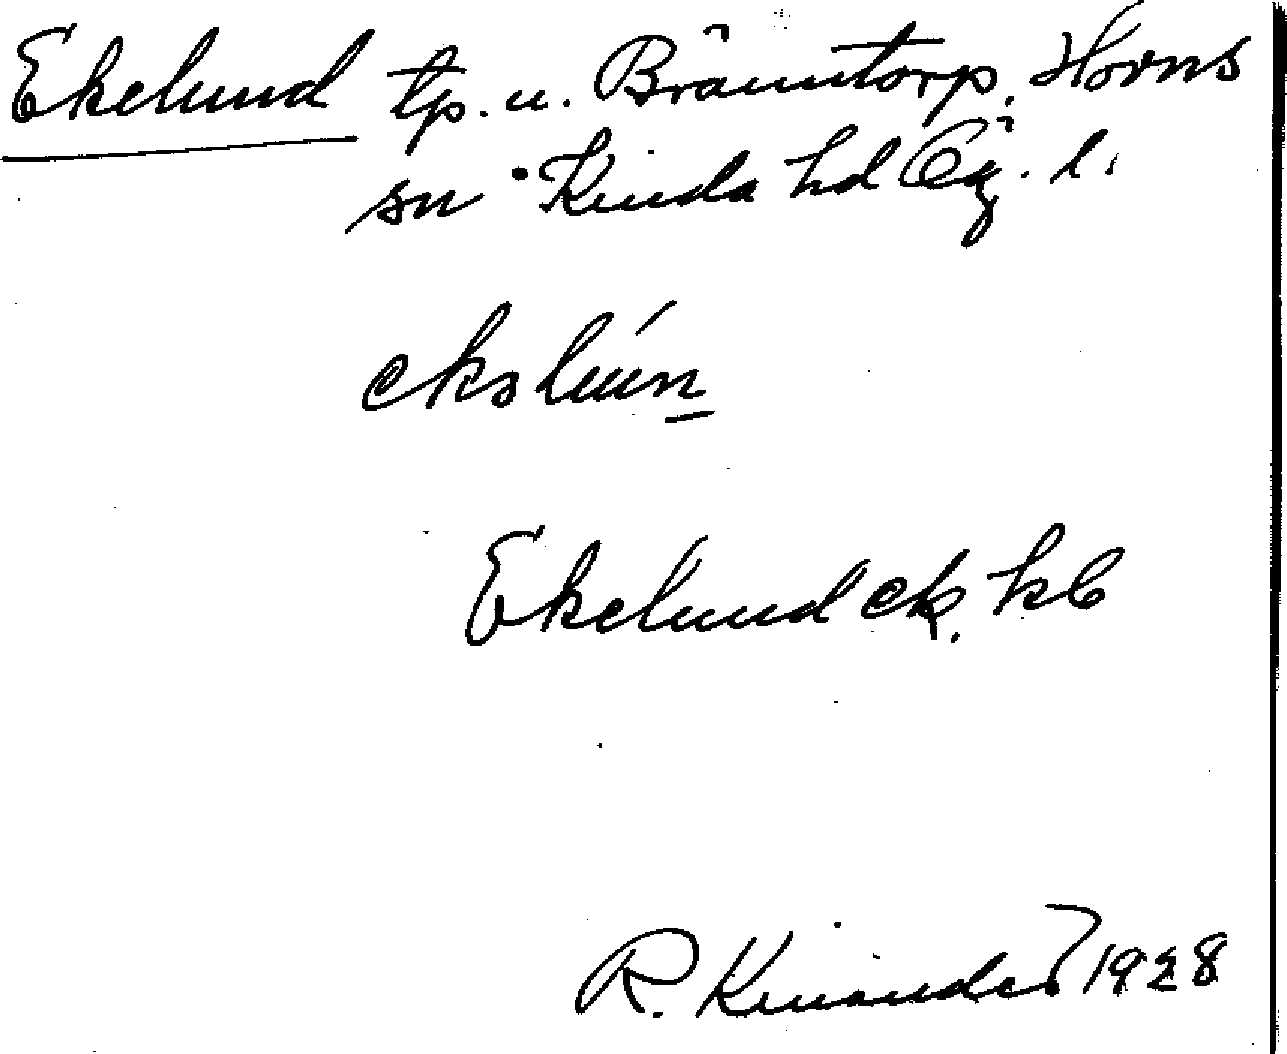 Ekelund tp. u. Bräuntorp, Horns
sn Kinda hd Ög. l.
ekslúnn
Ekelund ek. kb
R. Kinander 1928